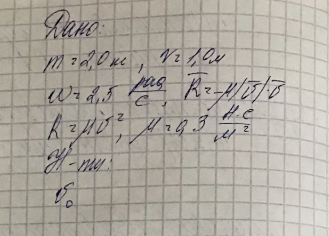 Дано:
m = 2,0 кг, r = 1,0 м
ω = 2,5 рад/с, R̅ = -μ|v̅|·v̅
R = μv², μ = 0,3 Н·с/м²
Н-ти:
v₀